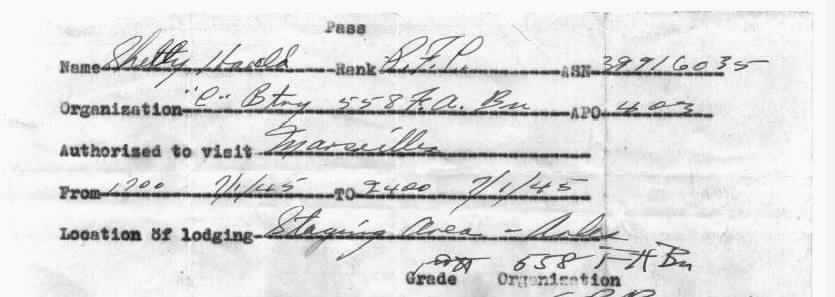 Pass
Name Shelly, Harold Rank P.F.C. ASN 39916035
Organization "C" Btry 558 F.A. Bn APO 403
Authorized to visit Marseille
From 1200 7/1/45 TO 2400 7/1/45
Location of lodging Staging Area - Arles
558 F A Bn
Grade Organization